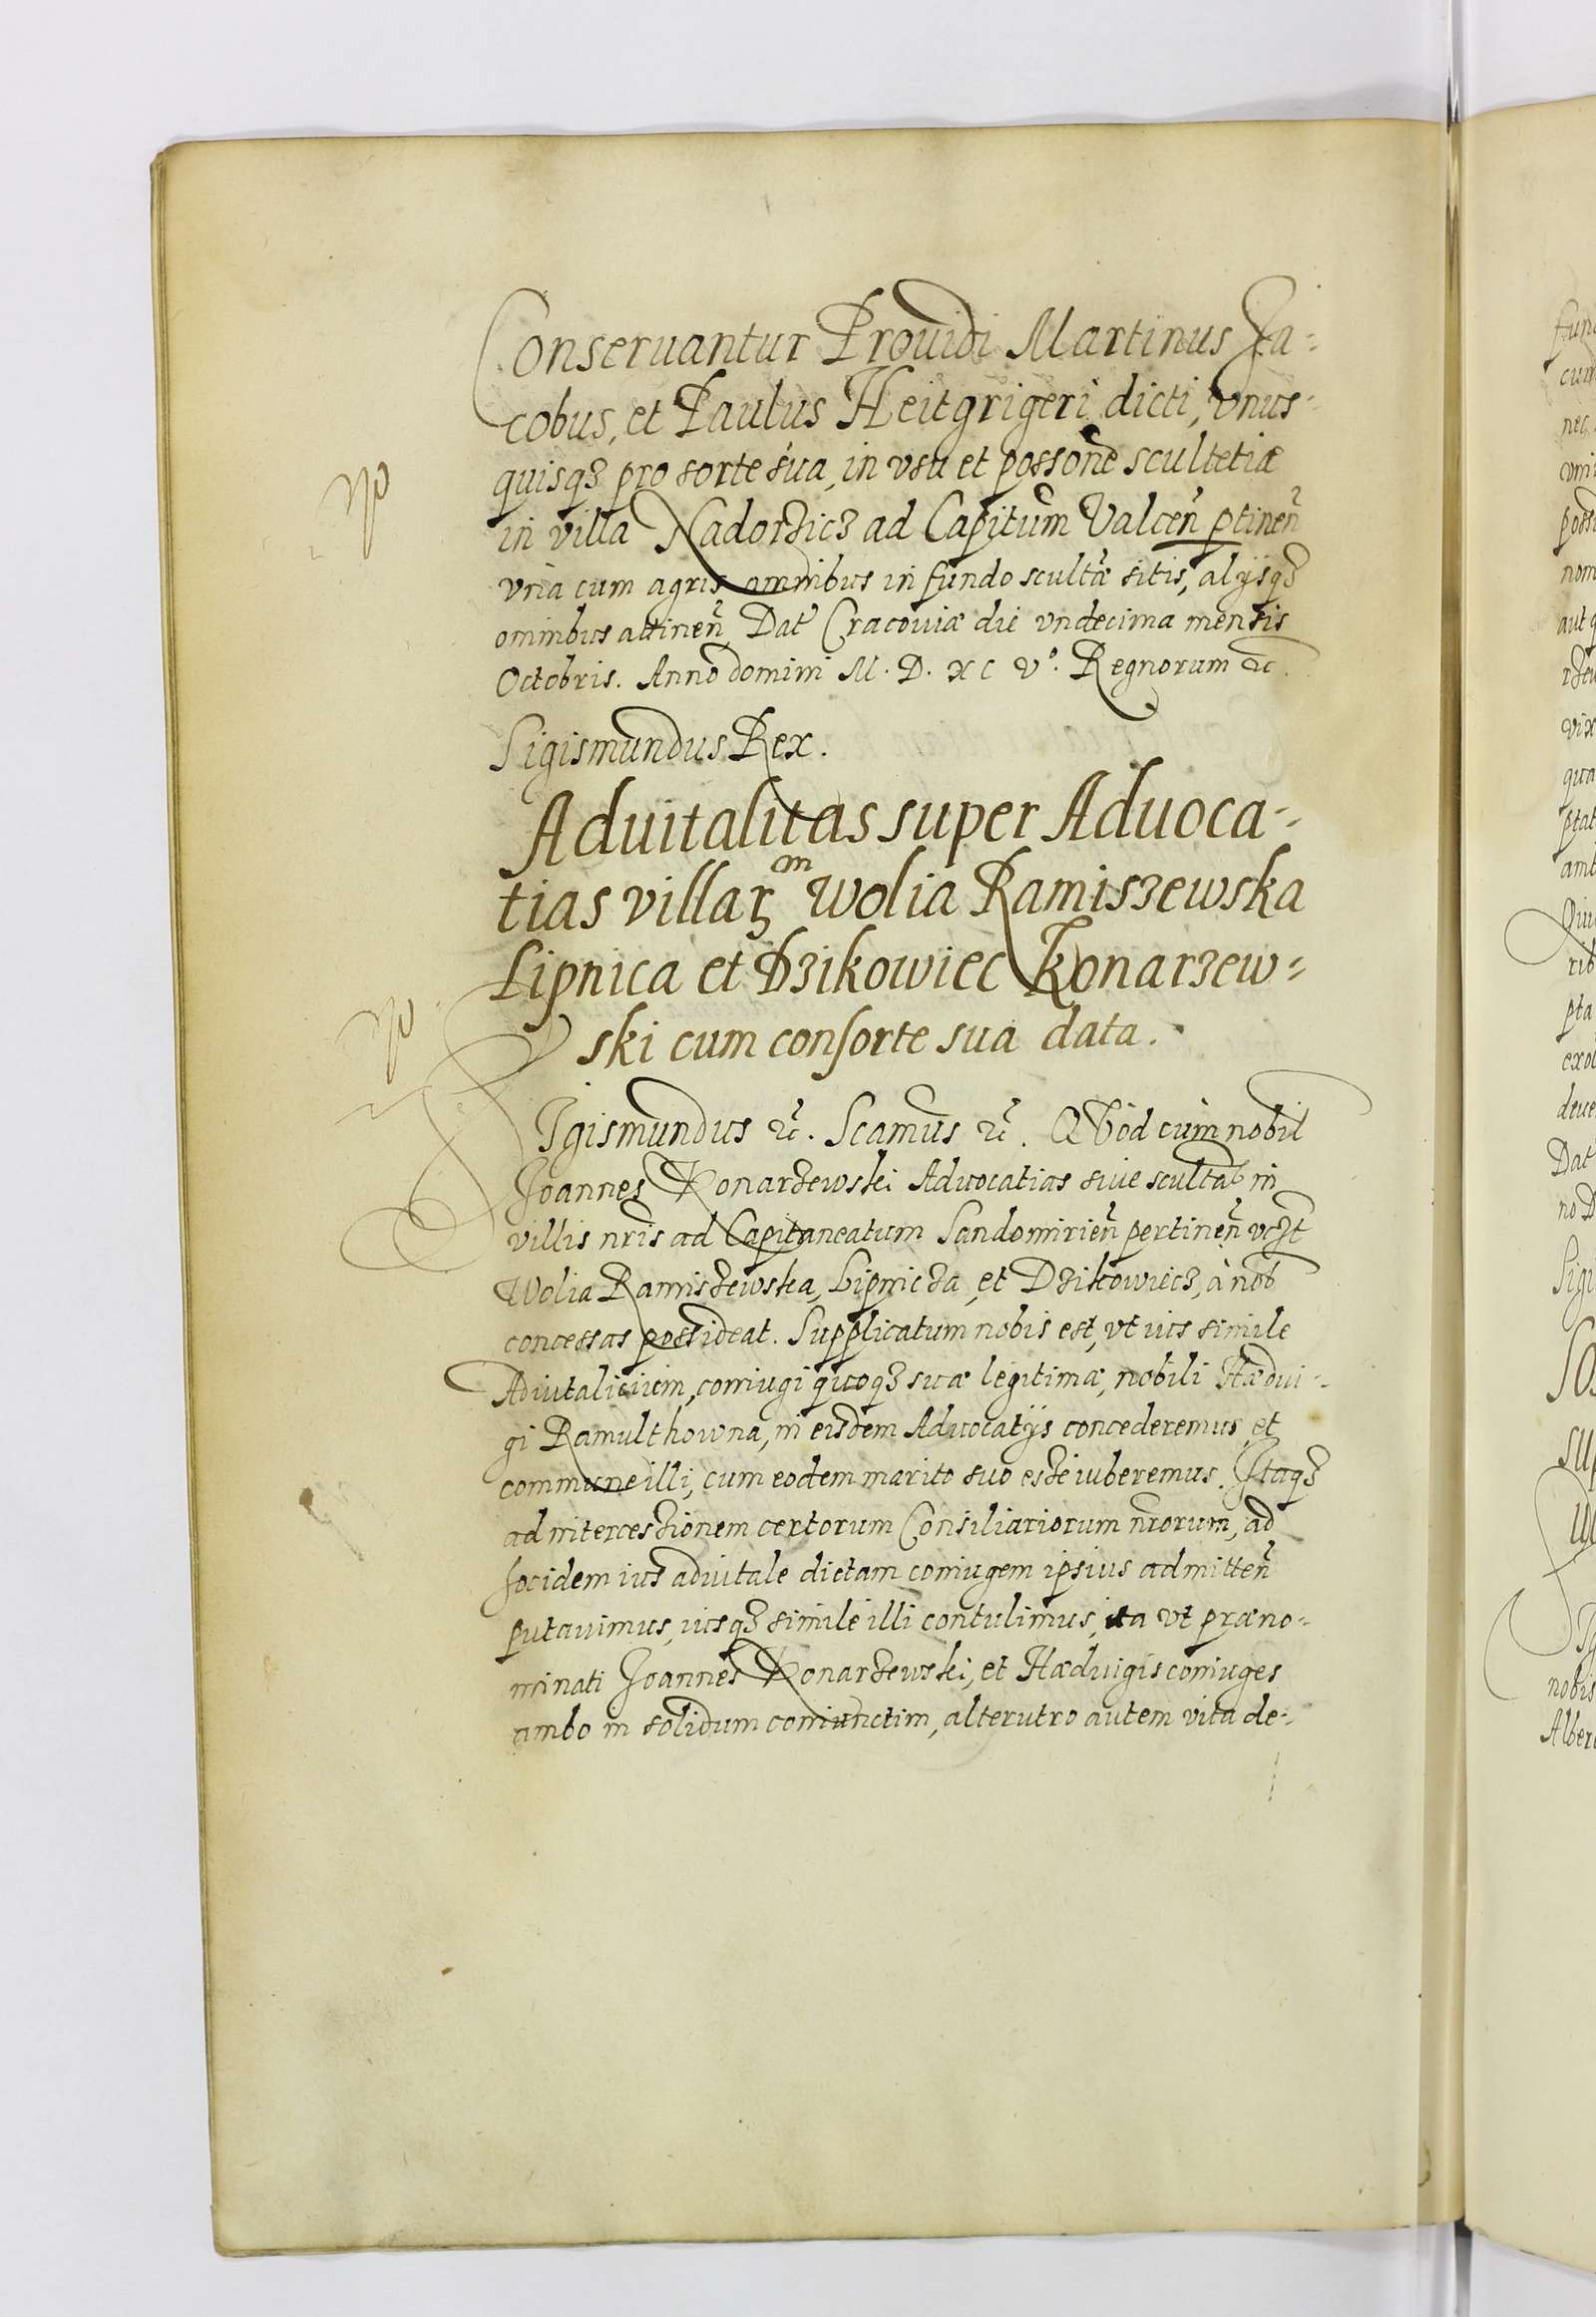 Conseruantur Prouidi Martinus Ja-
cobus, et Paulus Heitgrigeri dicti, vnus-
quisqꝫ pro sorte sua, in vsu et possone scultetiæ
in villa Nadorzicz ad Capitum Valcen ptinen
vna cum agris omnibus in fundo scultæ sitis, alijsqꝫ
omnibus attinen Dat Cracouiæ die vndecima mensis
Octobris. Anno domini M. D. XC Vº. Regnorum &c.
Sigismundus Rex.
Aduitalitas super Aduoca-
tias villaꝝ in Wolia Ramiszewska
Lipnica et Dzikowiec Konarzew-
ski cum consorte sua data.
SIgismundus &c. Scamus &c. QVod cum nobil
Joannes Konarzewski Aduocatias siue scultas in
villis nris ad Capitaneatum Sandomirien pertinen vczt
Wolia Ramiszewska, Lipnicza, et Dzikowiecz, à nob
concessas possideat. Supplicatum nobis est, vt ius simile
Aduitalicium, coniugi quoqꝫ suæ legitimæ, nobili Hædui-
gi Ramulthowna, in eisdem Aduocatijs concederemus, et
commune illi, cum eodem marito suo esse iuberemus. Itaqꝫ
ad intercessionem certorum Consiliariorum nrorum, ad
hocidem ius aduitale dictam coniugem ipsius admitten
putauimus, iusqꝫ simile illi contulimus, ita vt præno-
minati Joannes Konarzewski, et Hæduigis coniuges
ambo in solidum coniunctim, alterutro autem vita de-